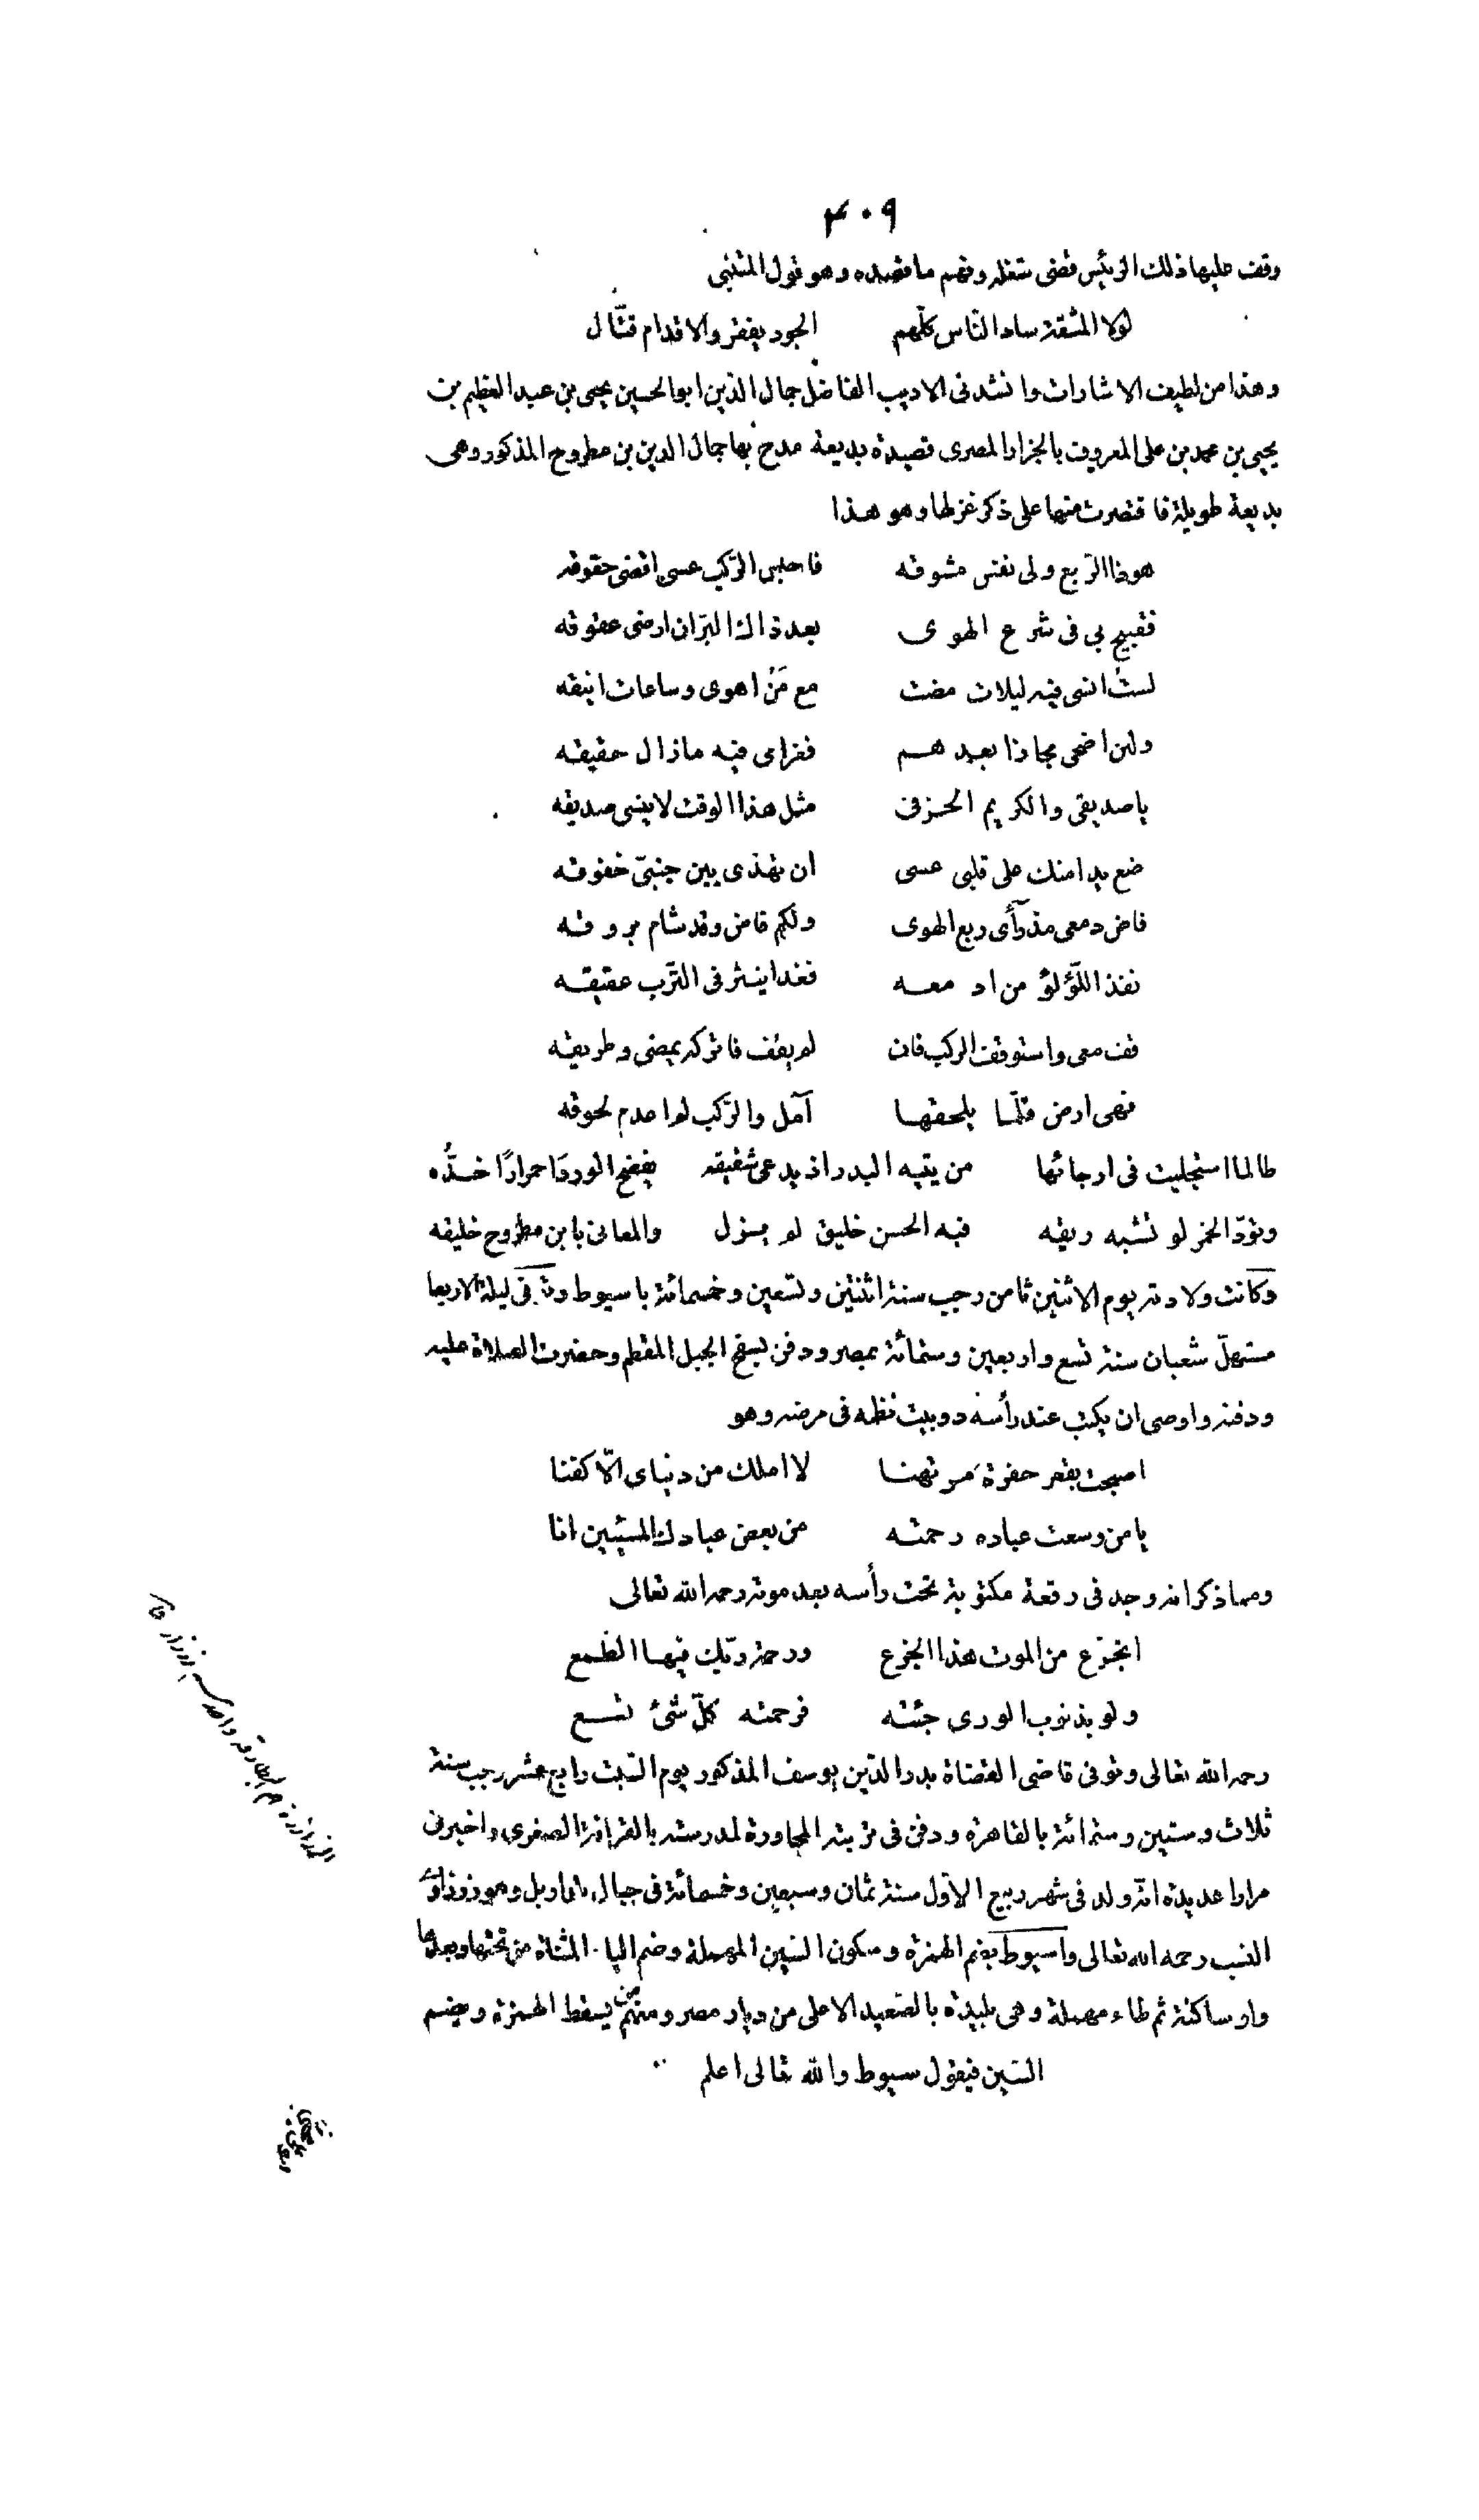 ٤٠٩
وقف عليها ذلك الرئيس قضى شغله وفهم ما قصده وهو قول المتنبى
لولا المشقة ساد النّاس كلّهم الجود يفقر والاقدام قتّال
وهذا من لطيف الاشارات وانشدنى الاديب الفاضل جمال الدّين ابو الحسين يحيى بن عبد العظيم بن
يحيى بن محمد بن على المعروف بالجزار المصرى قصيدة بديعة مدح بها جمال الدين بن مطروح المذكور وهى
بديعة طويلة فاقتصرت منها على ذكر غزلها وهو هذا
هوذا الرّبع ولى نفس مشوقه فاحبس الرّكب عسى اقضى حقوقه
فقبيح بى فى شرع الهوى بعد ذاك البرّ ان ارضى عقوقه
لستُ انسى فيه ليلات مضت مع مَنْ اهوى وساعات انيقه
ولئن اضحى مجازا بعدهم فغرامى فيه مازال حقيقه
يا صديقى والكريم الحر فى مثل هذا الوقت لا ينسى صديقه
ضع يدا منك على قلبى عسى ان تهدّى بين جنبىّ خفوقه
فاض دمعى مذ رآى ربع الهوى ولكم فاض وقد شام بروقه
نفد اللّؤلؤ من ادمعه فغدا ينثر فى التّرب عقيقه
قف معى واستوقف الركب فان لم يقف فاتركه يمضى وطريقه
فهى ارض قلّما يلحقها آمل والرّكب لم اعدم لحوقه
طالما استجليت فى ارجائها من يتيه البدر اذ يدعى شقيقه يفضح الورد احمرارًا خدّه
وتودّ الخمر لو تشبه ريقه فيه الحسن خليق لم يزل والمعانى بابن مطروح خليقه
وكانت ولادته يوم الاثنين ثامن رجب سنة اثنتين وتسعين وخمسمائة باسيوط وتوفى ليلة الاربعا
مستهلّ شعبان سنة تسع واربعين وستمائة بمصر ودفن بسفح الجبل المقطم وحضرت الصلاة عليه
ودفنه واوصى ان يكتب عند رأسه دوبيت نظمه فى مرضه وهو
اصبحت بقعر حفرة مرتهنا لا املك من دنياى الّا كفنا
يا من وسعت عباده رحمته من بعض عبادك المسيئين انا
ومما ذكر انه وجد فى رقعة مكتوبة تحت رأسه بعد موته رحمه الله تعالى
اتجزع من الموت هذا الجزع ورحمة ربّك فيها الطّمع
ولو بذنوب الورى جئته فرحمته كلّ شئ تسع
رحمه الله تعالى وتوفى قاضى القضاة بدر الدّين يوسف المذكور يوم السّبت رابع عشر رجب سنة
ثلاث وستين وستمائة بالقاهرة ودفن فى تربته المجاورة لمدرسته بالقرافة الصغرى واخبرنى
مرارا عديدة انّه ولد فى شهر ربيع الاوّل سنة ثمان وسبعين وخمسمائة فى جبال اربل وهو زرزارى
النسب رحمه الله تعالى واسيوط بضم الهمزة وسكون السّين المهملة وضم اليا المثناة من تحتها وبعدها
واو ساكنة ثم طاء مهملة وهى بليدة بالصّعيد الاعلى من ديار مصر ومنهم من يسقط الهمزة ويضم
السّين فيقول سيوط والله تعالى اعلم